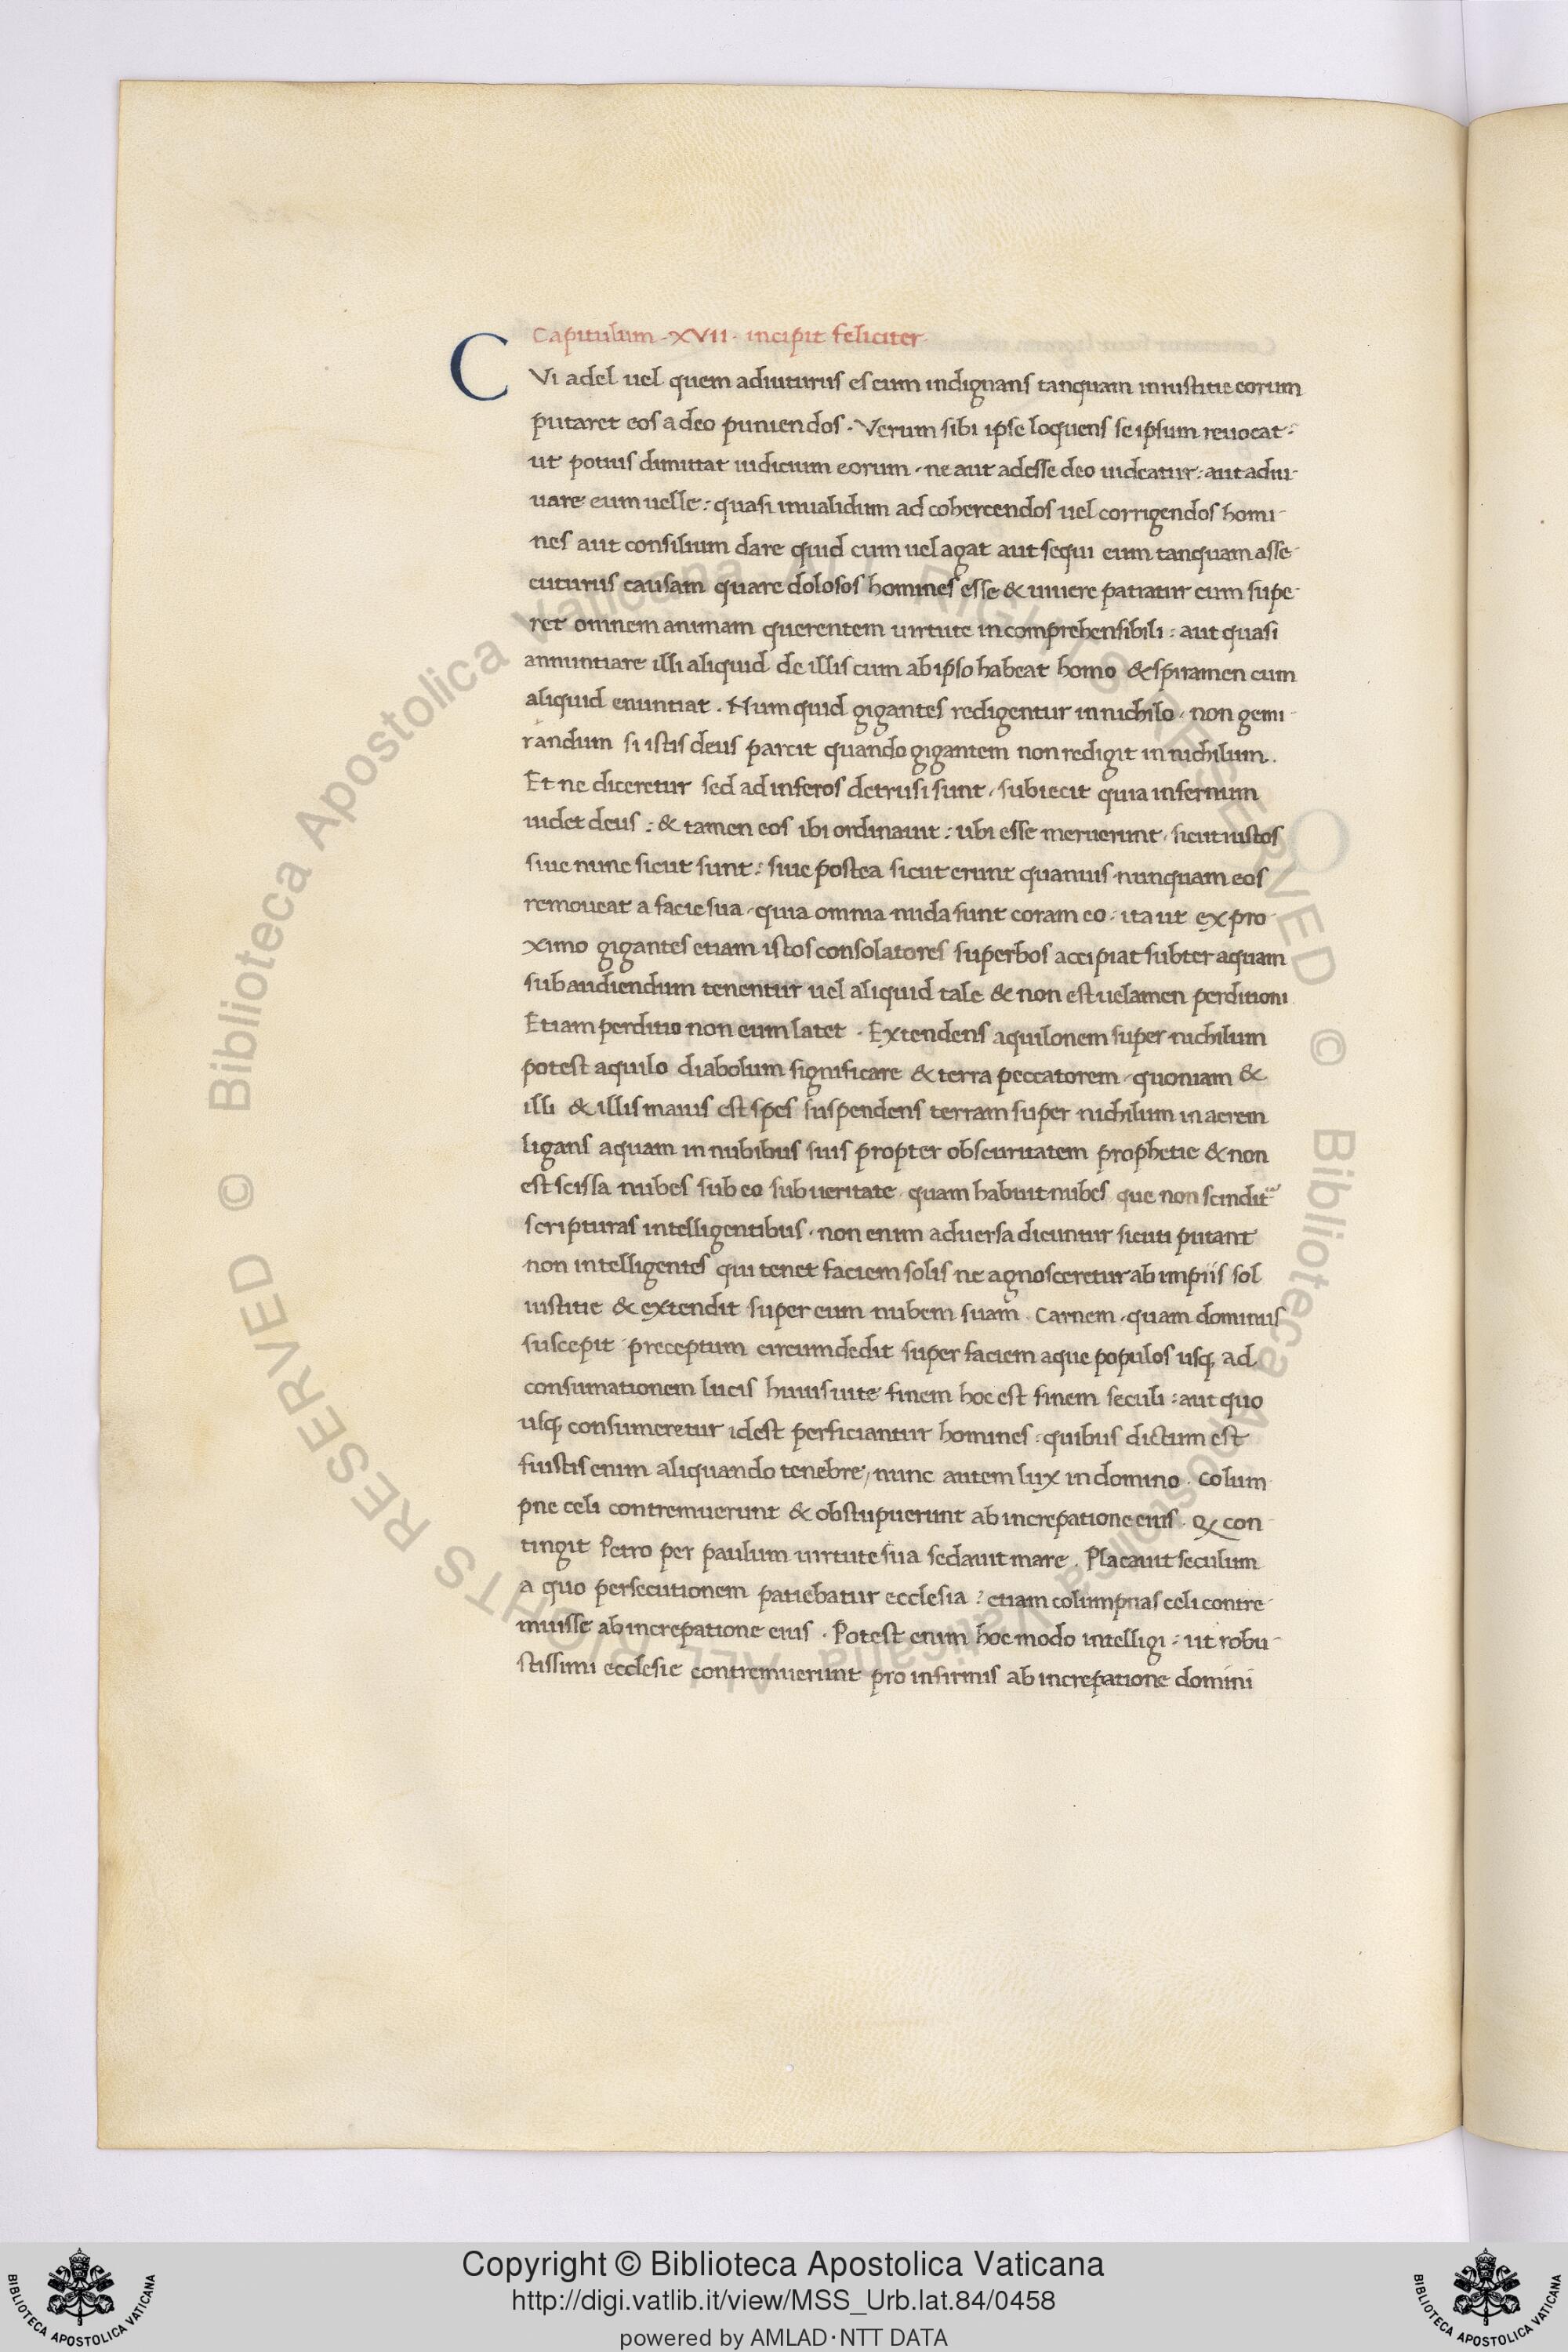 Capitulum · XVII · incipit feliciter ·
CVi adel uel quem adiuturus es eum indignans tanquam iniustitie eorum
putaret eos a deo puniendos · Verum sibi ipse loquens se ipsum reuocat :
ut potius dimittat iudicium eorum · ne aut adesse deo uideatur : aut adiu-
uare eum uelle : quasi inualidum ad cohercendos uel corrigendos homi-
nes aut consilium dare quid cum uel agat aut sequi eum tanquam asse-
cuturus causam quare dolosos homines esse & uiuere patiatur cum supe-
ret omnem animam querentem uirtute incomprehensibili : aut quasi
annuntiare illi aliquid de illis cum ab ipso habeat homo & spiramen cum
aliquid enuntiat · Numquid gigantes redigentur in nichilo · non gemi-
randum si istis deus parcit quando gigantem non redigit in nichilum ·
Et ne diceretur sed ad inferos detrusi sunt · subiecit quia infernum
uidet deus : & tamen eos ibi ordinauit : ubi esse meruerunt · sicut iustos
siue nunc sicut sunt : siue postea sicut erunt quamuis nunquam eos
remoueat a facie sua · quia omnia nuda sunt coram eo · ita ut ex pro-
ximo gigantes etiam istos consolatores superbos accipiat subter aquam
subaudiendum tenentur uel aliquid tale & non est uelamen perditioni
Etiam perditio non eum latet · Extendens aquilonem super nichilum
potest aquilo diabolum significare & terra peccatorem · quoniam &
illi & illis maius est spes suspendens terram super nichilum in aerem
ligans aquam in nubibus suis propter obscuritatem prophetie & non
est scissa nubes sub eo sub ueritate quam habuit nubes que non scindit
scripturas intelligentibus · non enim aduersa dicuntur sicuti putant
non intelligentes qui tenet faciem solis ne agnosceretur ab impiis sol
iustitie & extendit super eum nubem suam · Carnem · quam dominus
suscepit preceptum circumdedit super faciem aque populos usq; ad
consumationem lucis huius uite finem hoc est finem seculi : aut quo
usq; consumeretur idest perficiantur homines : quibus dictum est
fuistis enim aliquando tenebre / nunc autem lux in domino · Colum
pne celi contremuerunt & obstupuerunt ab increpatione eius · Qx con-
tingit Petro per paulum uirtute sua sedauit mare · Placauit seculum
a quo persecutionem patiebatur ecclesia : etiam columpnas celi contre-
muisse ab increpatione eius · Potest enim hoc modo intelligi : ut robu-
stissimi ecclesie contremuerunt pro infirmis ab increpatione domini
© Biblioteca Apostolica Vaticana ALL RIGHTS RESERVED © Biblioteca Apostolica Vaticana ALL RIGHTS RESERVED
Copyright © Biblioteca Apostolica Vaticana
http://digi.vatlib.it/view/MSS_Urb.lat.84/0458
powered by AMLAD·NTT DATA
BIBLIOTECA APOSTOLICA VATICANA
BIBLIOTECA APOSTOLICA VATICANA